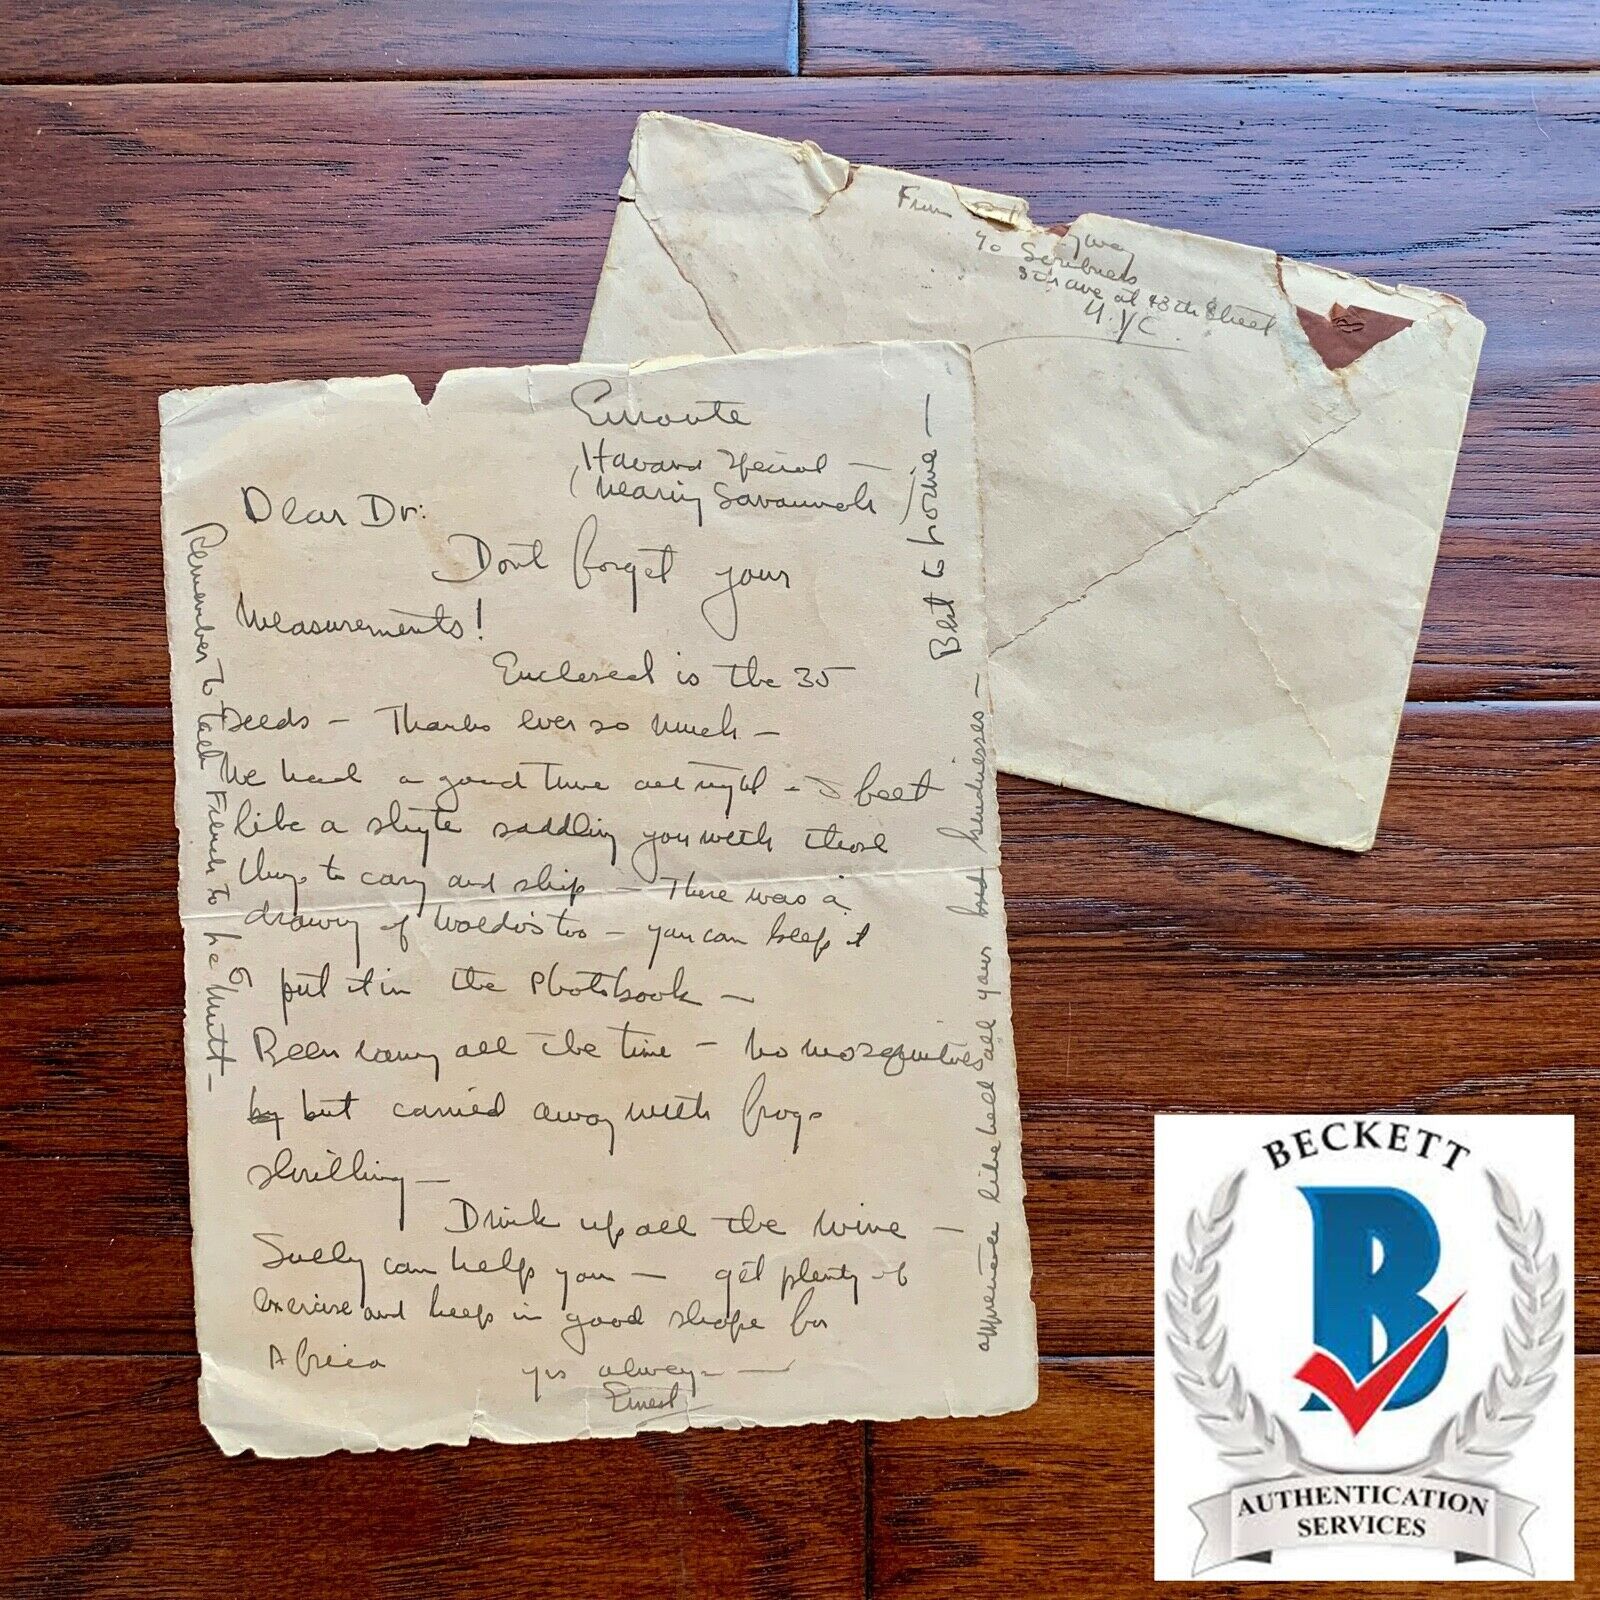 From
way
c/o Scribners
5th ave at 48th Street
N.Y.C.
Enroute
Havana Special —
(Nearing Savannah)
Dear Dr:
Dont forget your
Measurements!
Enclosed is the 35
Seeds — Thanks ever so much —
We had a good time all right — I feel
like a shyte saddling you with those
things to carry and ship — There was a
drawing of Waldo's too — you can keep it
or put it in the Photobook —
Been rainy all the time — no mosquitoes
by but carried away with frogs
shrilling —
Drink up all the wine —
Sully can help you — get plenty of
exercise and keep in good shape for
Africa
yrs always —
Ernest
Remember to talk French to the Mutt —
Best to Lorine —
appreciate like hell all your kindnesses —
BECKETT
B
AUTHENTICATION
SERVICES